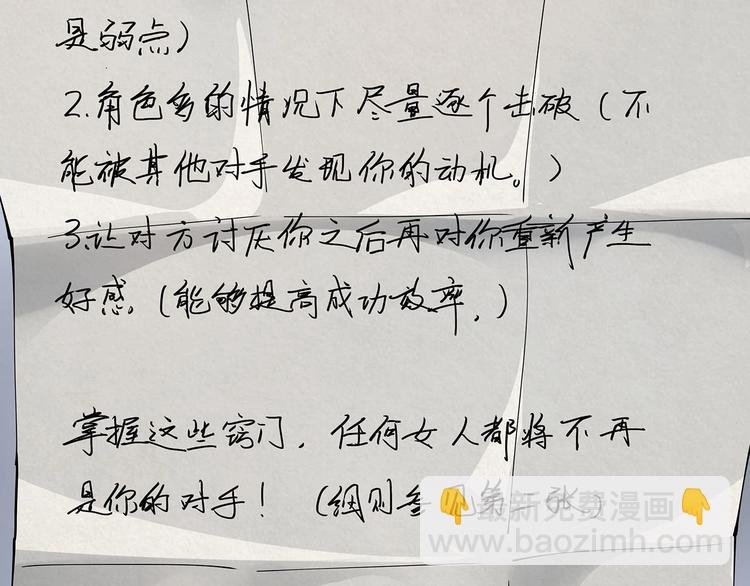 是弱点)
2.角色多的情况下尽量逐个击破(不
能被其他对手发现你的动机。)
3.让对方讨厌你之后再对你重新产生
好感。(能够提高成功效率,)
掌握这些窍门,任何女人都将不再
是你的对手!(细则参见第一张)
最新免费漫画
www.baozimh.com